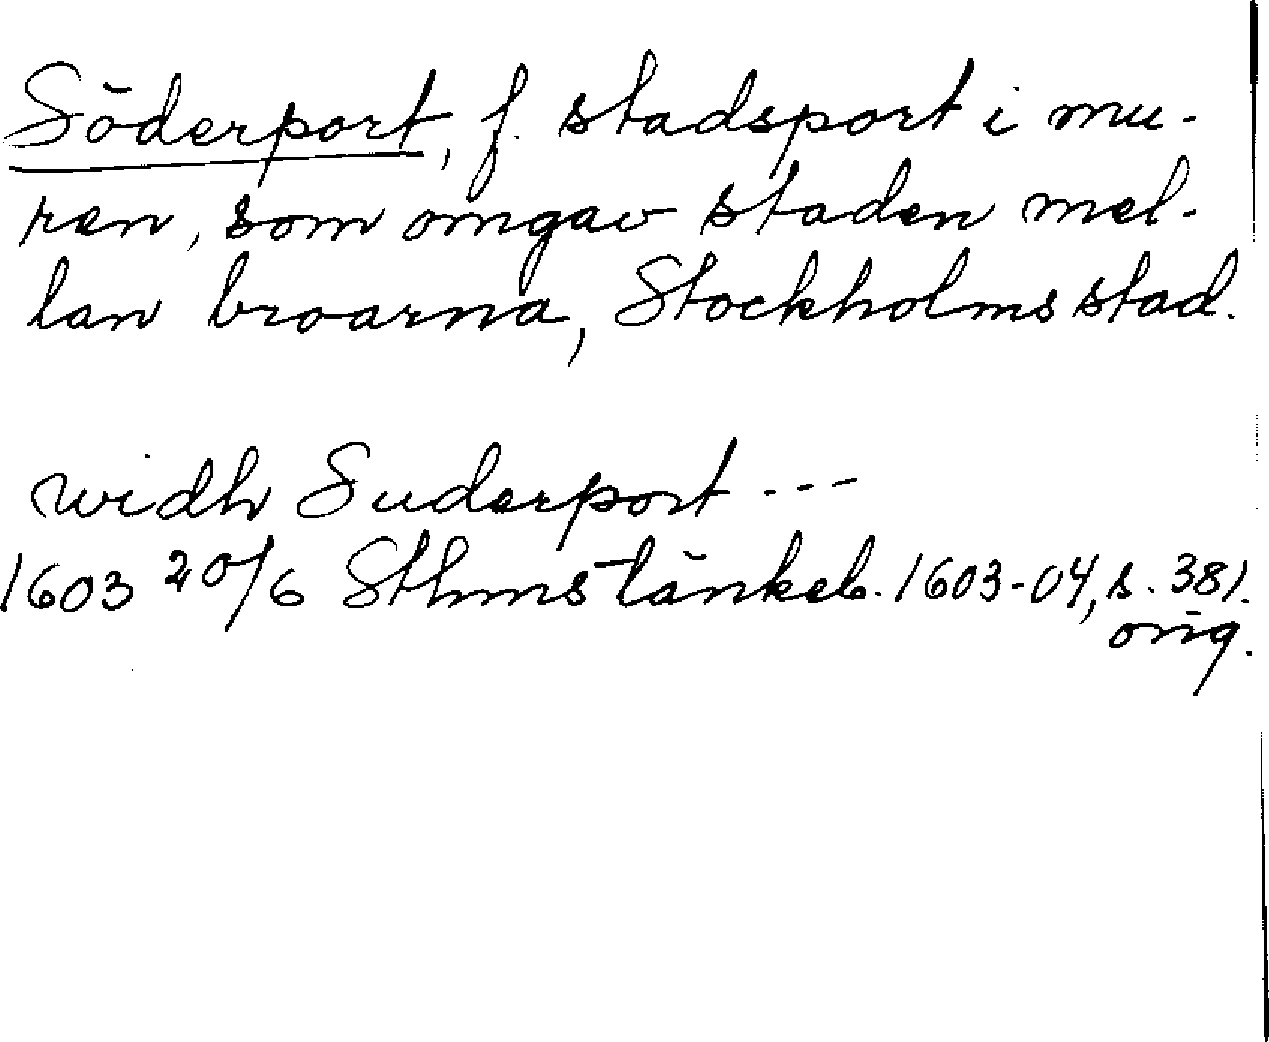 Söderport, f. stadsport i mu-
ren, som omgav staden mel-
lan broarna, Stockholms stad.
widh Suderport ---
1603 20/6 Sthms tänkeb. 1603-04, s. 381.
orig.